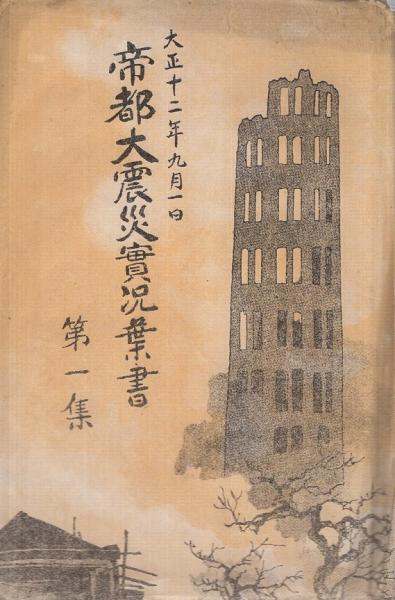 大正十二年九月一日
帝都大震災實況葉書
第一集